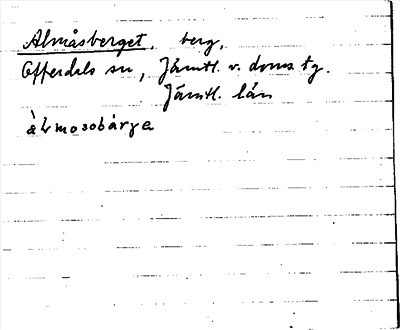 Almåsberget, berg,
Offerdals sn, Jämtl. v. doms. tg.
Jämtl. län
àLmosobärjɛ